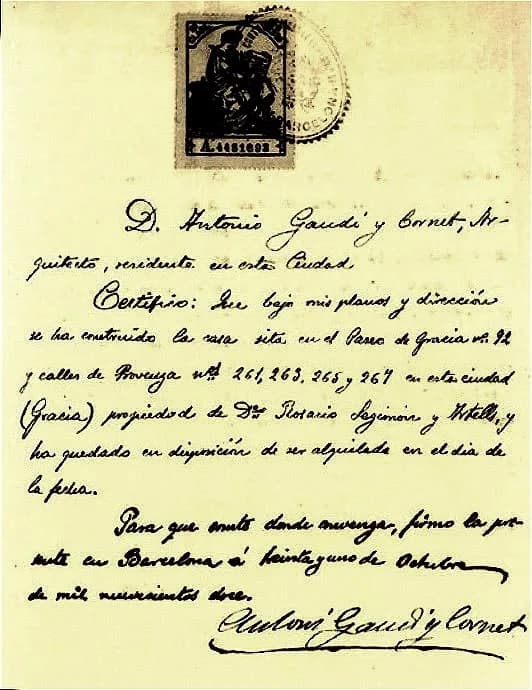 A.4481693
BARCELONA
D. Antonio Gaudí y Cornet, Ar-
quitecto, residente en esta Ciudad
Certifico: Que bajo mis planos y dirección
se ha construido la casa sita en el Paseo de Gracia nº. 92
y calles de Provenza nos 261, 263, 265 y 267 en esta ciudad
(Gracia) propiedad de Dña Rosario Segimón y Artells, y
ha quedado en disposición de ser alquilada en el dia de
la fecha.
Para que conste donde convenga, firmo la pre-
sente en Barcelona á treinta y uno de Octubre
de mil novecientos doce.
Antoni Gaudí y Cornet